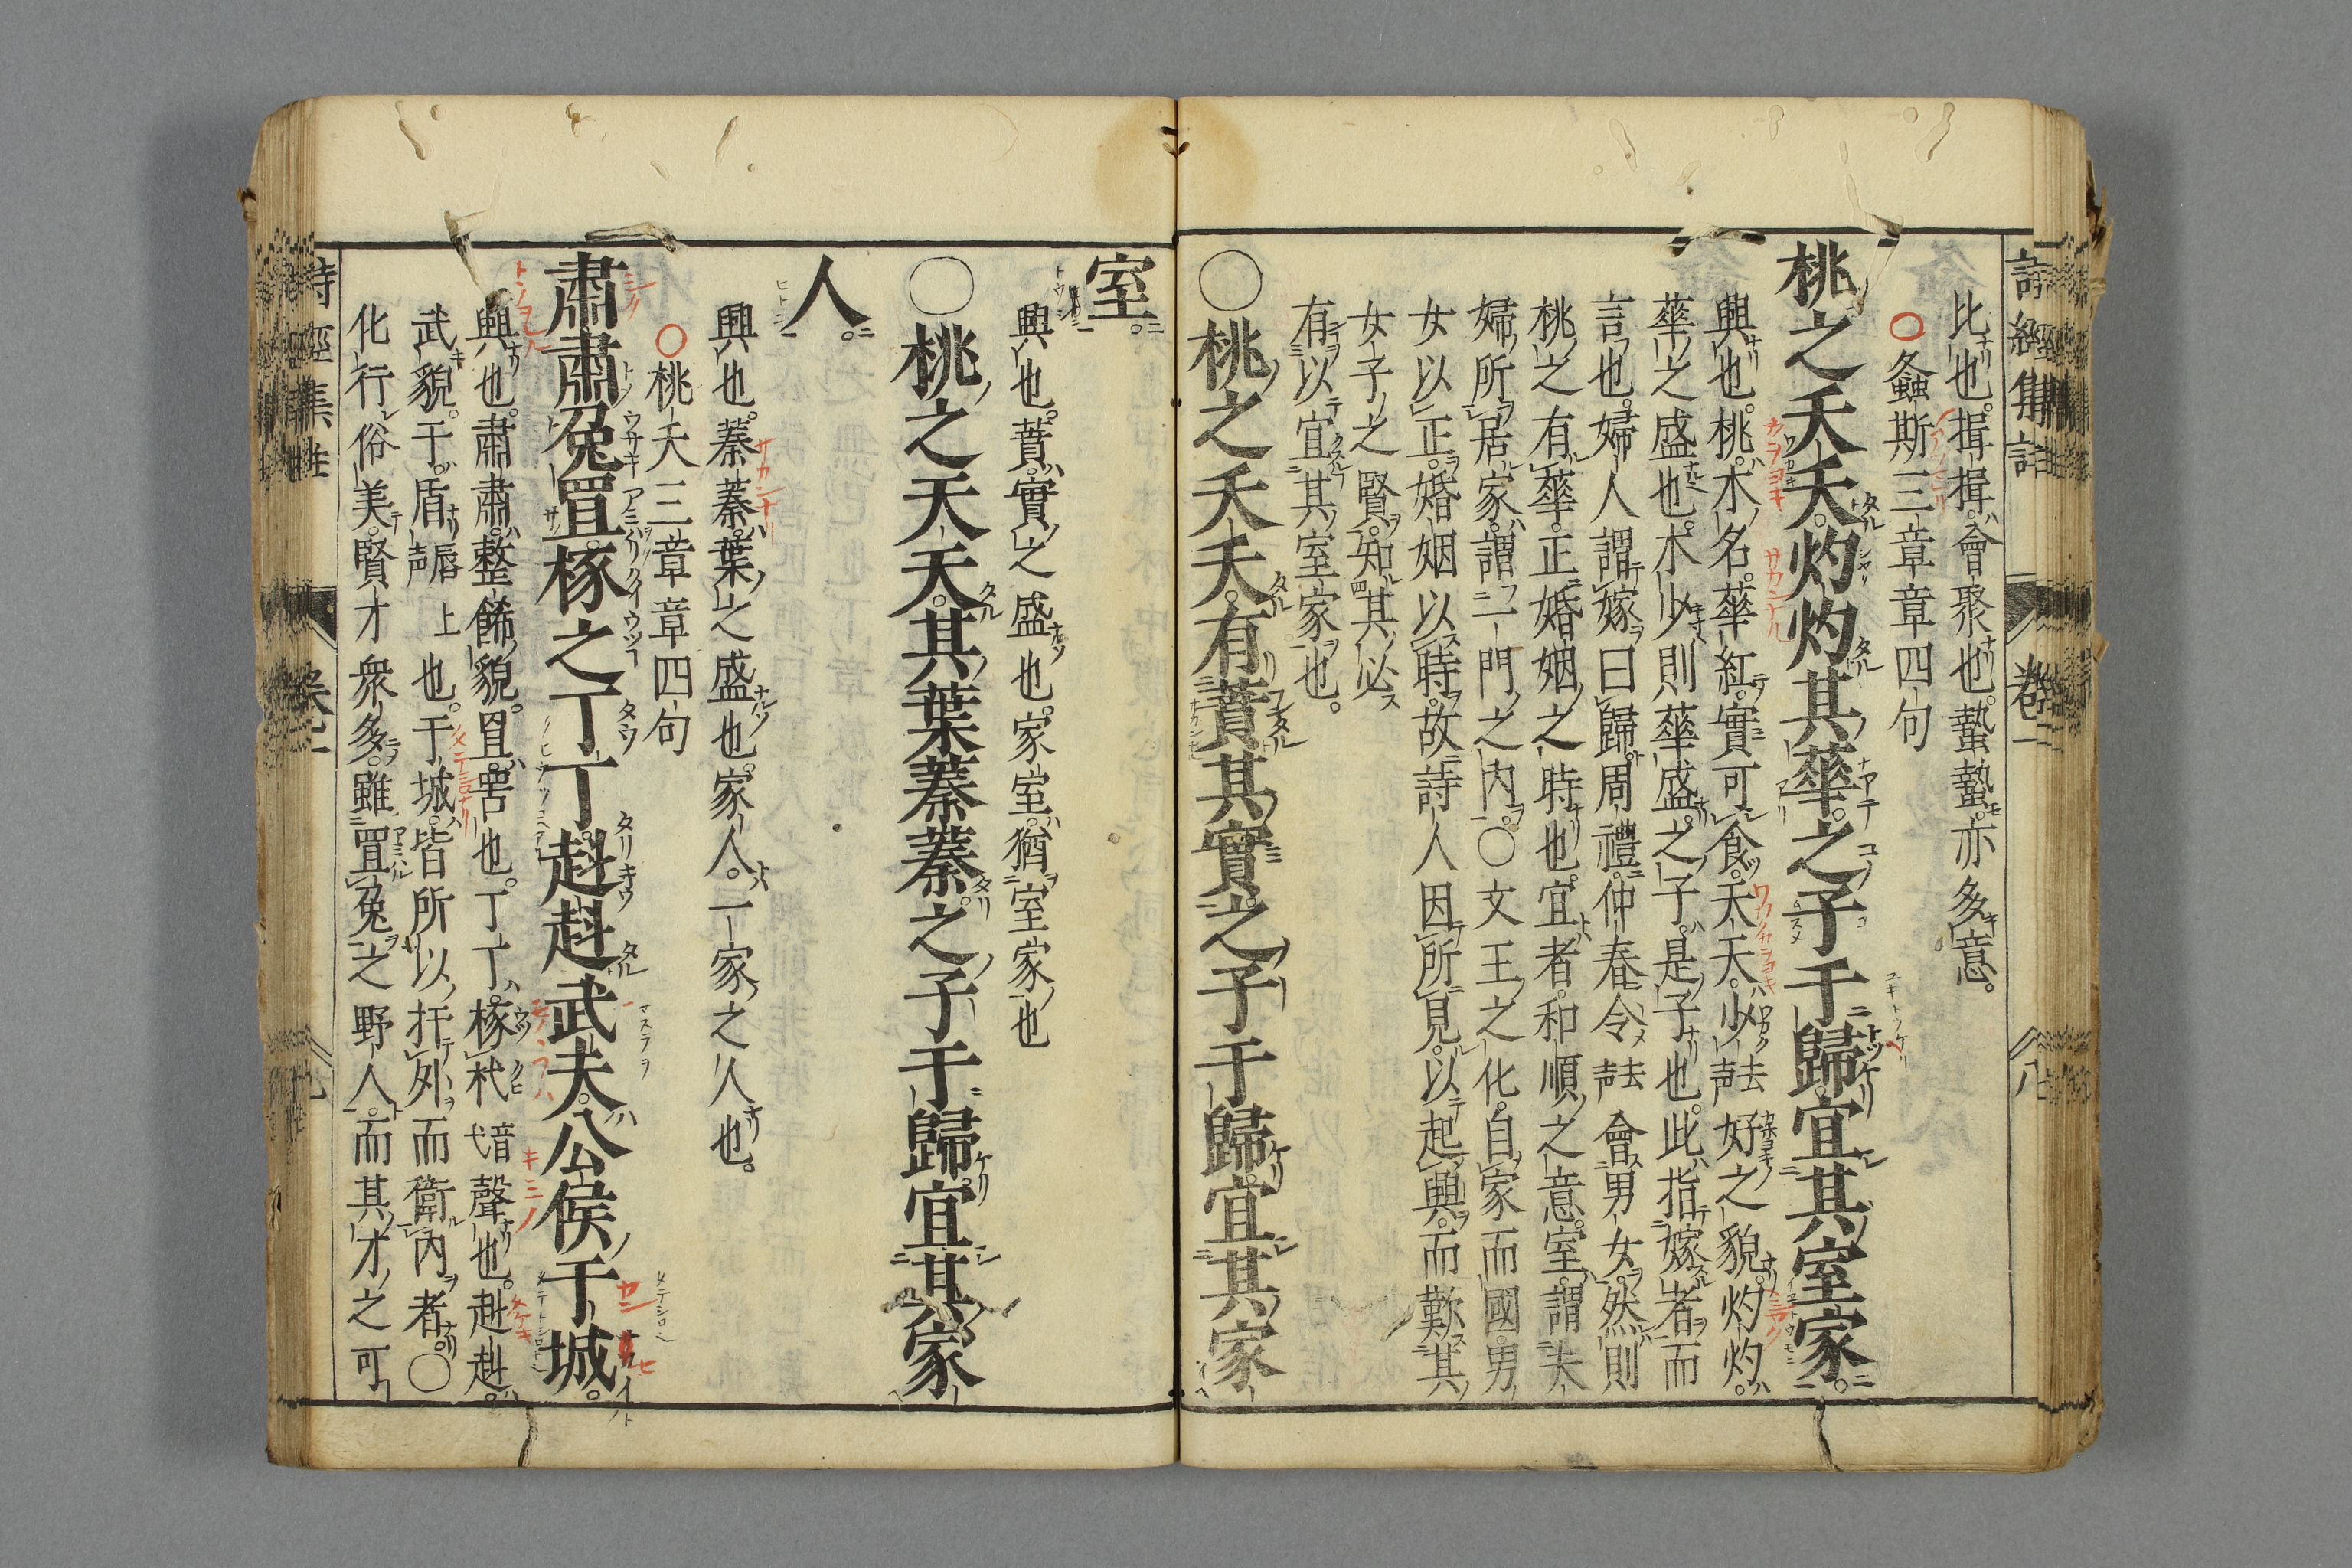 詩經集註 卷一 八
比也。揖揖。會聚也。蟄蟄。亦多意。
○螽斯三章章四句
桃之夭夭。灼灼其華。之子于歸。宜其室家。
興也。桃。木名。華紅。實可食。夭夭。少去声好之貌。灼灼。
華之盛也。木少則華盛。之子。是子也。此指嫁者而
言也。婦人謂嫁曰歸。周禮。仲春令去声會男女。然則
桃之有華。正婚姻之時也。宜者。和順之意。室。謂夫
婦所居。家。謂一門之內。○文王之化。自家而國。男
女以正。婚姻以時。故詩人因所見。以起興。而歎其
女子之賢。知其必
有以宜其室家也。
○桃之夭夭。有蕡其實。之子于歸。宜其家
室。
興也。蕡。實之盛也。家室。猶室家也
○桃之夭夭。其葉蓁蓁。之子于歸。宜其家
人。
興也。蓁蓁。葉之盛也。家人。一家之人也。
○桃夭三章章四句
肅肅兔罝。椓之丁丁。赳赳武夫。公侯干城。
興也。肅肅。整飭貌。罝。罟也。丁丁。椓杙音弋聲也。赳赳。
武貌。干。盾脣上声也。干城。皆所以扞外而衛內者。○
化行俗美。賢才衆多。雖罝兔之野人。而其才之可
詩經集註 卷一 九